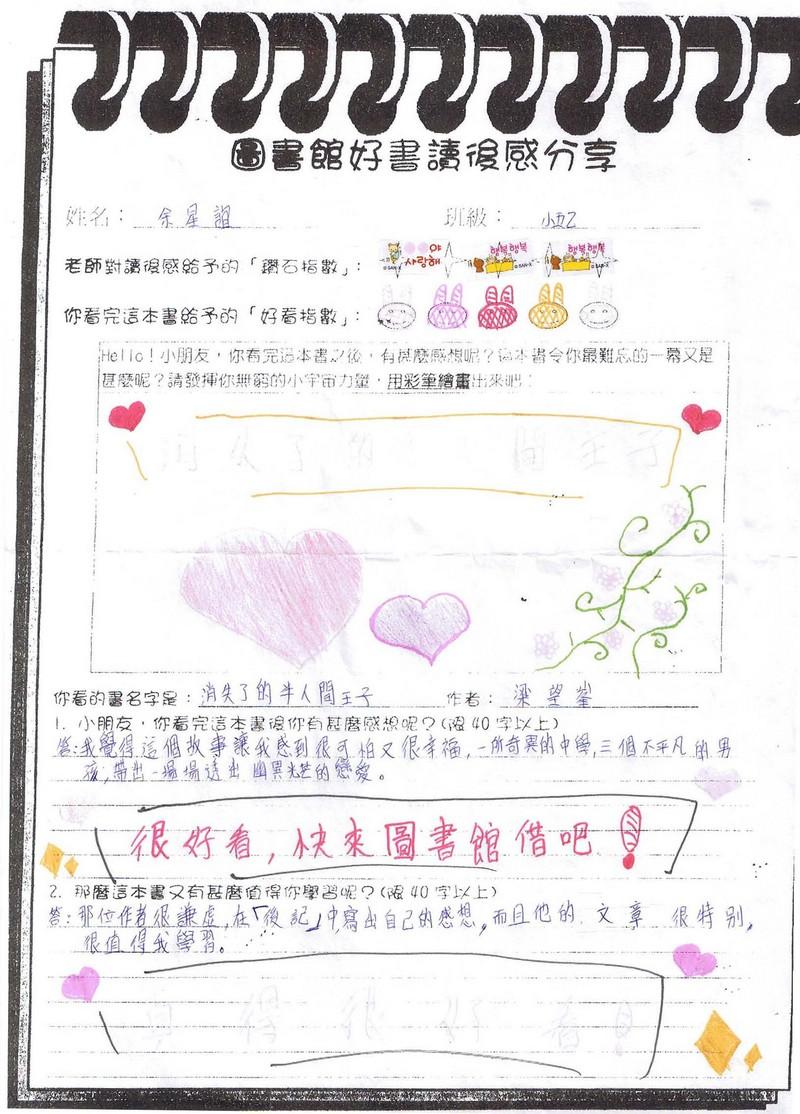 圖書館好書讀後感分享
姓名： 余星誼 班級： 小五乙
老師對讀後感給予的「鑽石指數」：
야 사랑해 행복행복 행복행복
你看完這本書給予的「好看指數」：
Hello！小朋友，你看完這本書之後，有甚麼感想呢？這本書令你最難忘的一幕又是
甚麼呢？請發揮你無窮的小宇宙力量，用彩筆繪畫出來吧！
消失了的 間王子
你看的書名字是：消失了的半人間王子 作者：梁望峯
1. 小朋友，你看完這本書後你有甚麼感想呢？(限 40 字以上)
答：我覺得這個故事讓我感到很可怕又很幸福，一所奇異的中學，三個不平凡的男
孩，帶出一場場透出幽異光芒的戀愛。
很好看，快來圖書館借吧！
2. 那麼這本書又有甚麼值得你學習呢？(限 40 字以上)
答：那位作者很謙虛，在「後記」中寫出自己的感想，而且他的文章很特別，
很值得我學習。
真得很好看！